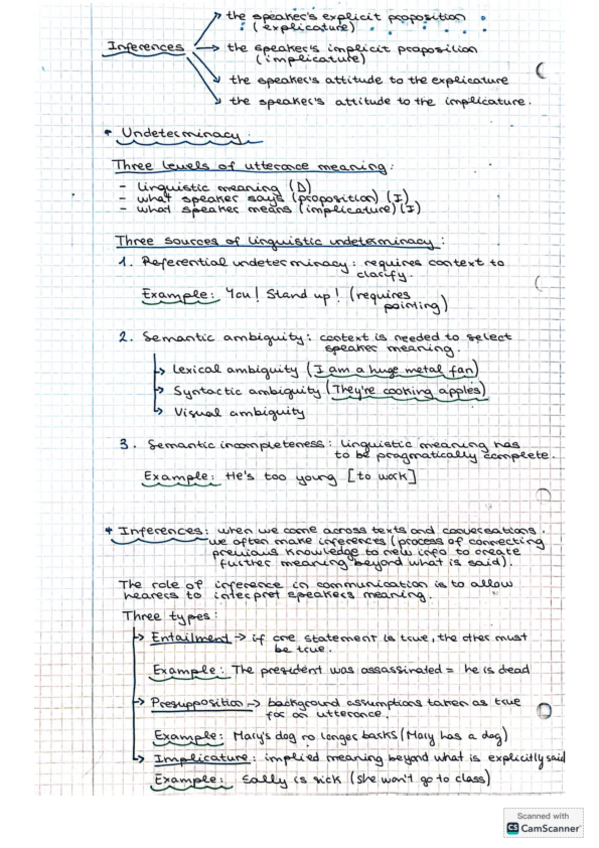 the speaker's explicit proposition
(explicature)
Inferences
the speaker's implicit proposition
(implicature)
the speaker's attitude to the explicature
the speaker's attitude to the implicature.
* Undeterminacy:
Three levels of utterance meaning:
- linguistic meaning (D)
- what speaker says (proposition) (I)
- what speaker means (implicature) (I)
Three sources of linguistic undeterminacy:
1. Referential undeterminacy: requires context to
clarify.
Example: You! Stand up! (requires
pointing)
2. Semantic ambiguity: context is needed to select
speaker meaning.
Lexical ambiguity (I am a huge metal fan)
Syntactic ambiguity (They're cooking apples)
Visual ambiguity
3. Semantic incompleteness: linguistic meaning has
to be pragmatically complete.
Example: He's too young [to work]
* Inferences: when we come across texts and conversations.
we often make inferences (process of connecting
previous knowledge to new info to create
further meaning beyond what is said).
The role of inference in communication is to allow
hearers to interpret speakers meaning.
Three types:
Entailment → if one statement is true, the other must
be true.
Example: The president was assassinated = he is dead
Presupposition → background assumptions taken as true
for an utterance.
Example: Mary's dog no longer backs (Mary has a dog)
Implicature: implied meaning beyond what is explicitly said
Example: Sally is sick (she won't go to class)
Scanned with
CS CamScanner